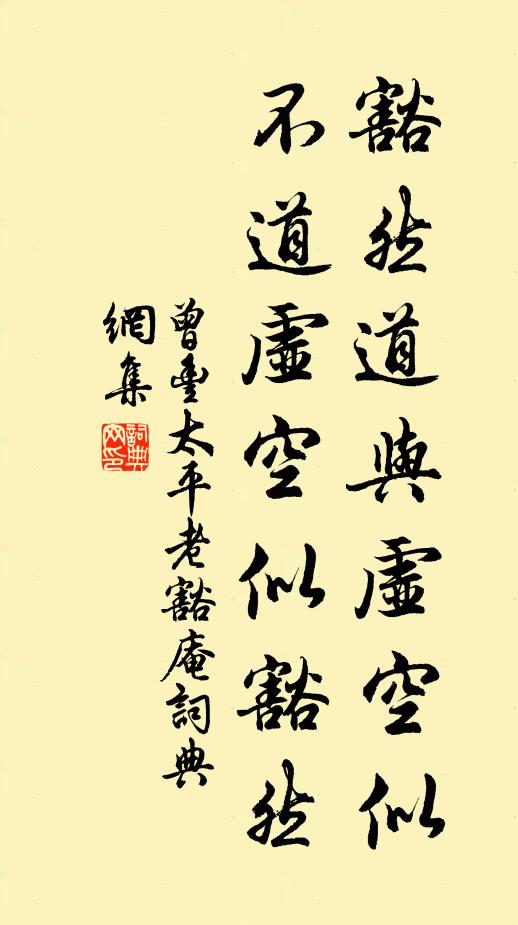 豁然道與虛空似
不道虛空似豁然
曾豐太平老豁庵詞典
網集
詞典
网印